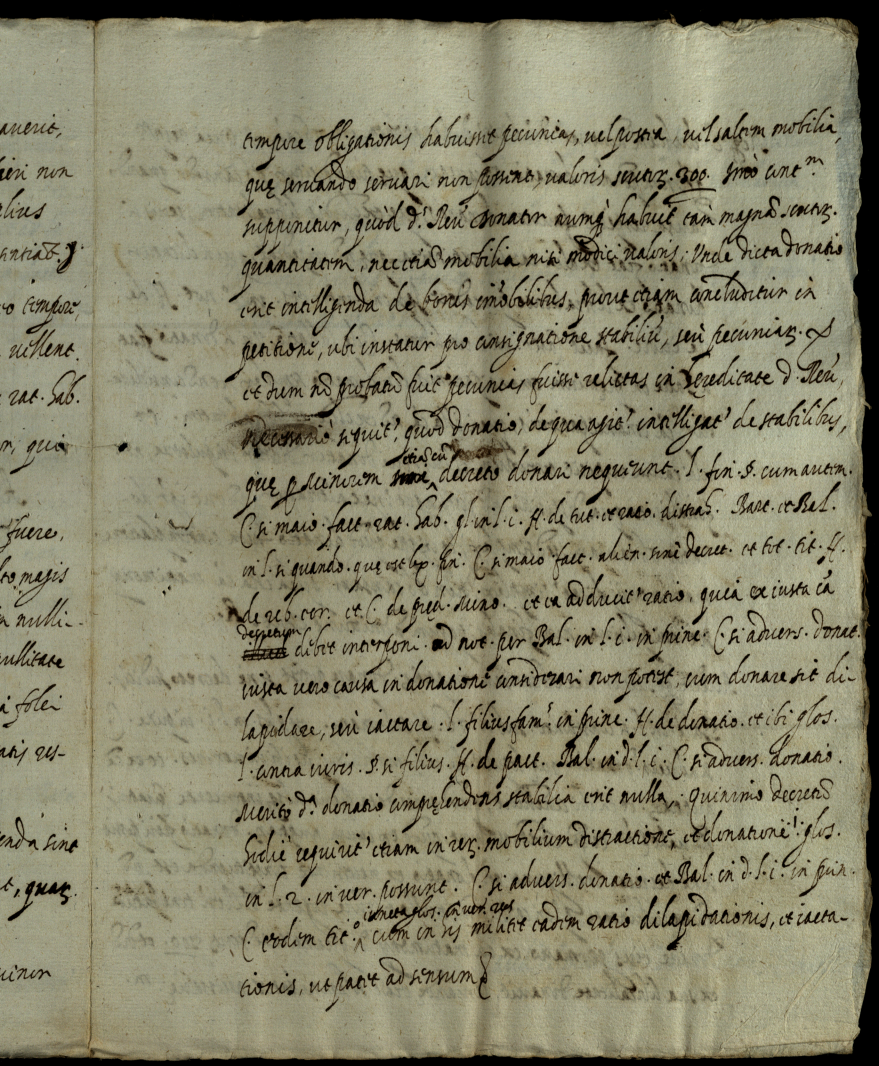 auerit,
fieri non
alius
eo tempore,
vellent.
rat. hab.
qui
fuere,
magis
nulli-
nullitate
res-
sint
quaꝝ
minor
tempore obligationis habuisset pecunias, vel postea, vel saltem mobilia,
quę servando servari non possent, valoris scutoꝝ. 300. Imò cont.m
supponitur, quòd d.s Reu. donator numq̃ habuit tam magnã scutoꝝ.
quantitatem, nec etiã mobilia nisi modici valoris; Unde dicta donatio
erit intelligenda de bonis imobilibus. prout etiam concluditur in
petitione, ubi instatur pro consignatione stabiliũ, seu pecuniaꝝ.
et dum nõ probatũ fuit pecunias fuisse relictas in hereditate d. Reu.
necessariò sequit.r quòd donatio, de qua agit.r intelligat.r de stabilibus,
quę ꝑ Minorem etiã cũ decreto donari nequeunt. l. fin. §. cum autem.
C. si maio. fact. rat. hab. gl. in l. i. ff. de tut. et ratio. distrah. Bart. et Bal.
in l. si quando. que est lex fin. C. si maio. fact. alien. sine decret. et tot. tit. ff.
de reb. eor. et C. de pręd. Mino. et ea adducit.r ratio, quia ex iusta cã
decretum debet interponi. ad not. per Bal. in l. i. in prine. C. si advers. donat.
iusta vero causa in donatione considerari non potest, cum donare sit di-
lapidare, seu iactare. l. filiusfam.s in prine. ff. de donatio. et ibi glos.
l. contra iuris. §. si filius. ff. de pact. Bal. in d. l. i. C. si advers. donatio.
Meritò d.a donatio comprehendens stabilia erit nulla, Quinimo decretũ
hodie requirit.r etiam in reꝝ. mobilium distractione, et donatione. glos.
in l. 2. in ver. possunt. C. si advers. donatio. et Bal. in d. l. i. in prin.
C. eodem tit.o cum in ijs militet eadem ratio dilapidationis, et iacta-
tionis, ut patet ad sensum